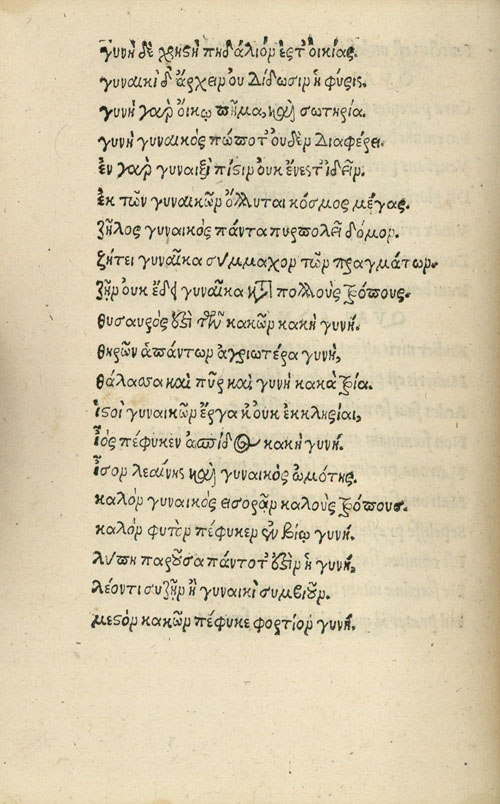 γυνὴ δὲ χρηστὴ πηδάλιόν ἐστ' οἰκίας.
γυναικὶ δ' ἄρχειν οὐ δίδωσιν ἡ φύσις.
γυνὴ γὰρ οἴκῳ πῆμα, καὶ σωτηρία.
γυνὴ γυναικὸς πώποτ' οὐδὲν διαφέρει.
ἐν γὰρ γυναιξὶ πίστιν οὐκ ἔνεστ' ἰδεῖν.
ἐκ τῶν γυναικῶν ὄλλυται κόσμος μέγας.
ζῆλος γυναικὸς πάντα πυρπολεῖ δόμον.
ζήτει γυναῖκα σύμμαχον τῶν πραγμάτων.
ζῆν οὐκ ἔδει γυναῖκα κατὰ πολλοὺς τρόπους.
θυσαυρός ἐστι τῶν κακῶν κακὴ γυνή.
θηρῶν ἁπάντων ἀγριωτέρα γυνή,
θάλασσα καὶ πῦρ καὶ γυνὴ κακὰ τρία.
ἱστοὶ γυναικῶν ἔργα κ' οὐκ ἐκκλησίαι,
ἰὸς πέφυκεν ἀσπίδος κακὴ γυνή.
ἴσον λεαίνης καὶ γυναικὸς ὠμότης.
καλὸν γυναικὸς εἰσορᾶν καλοὺς τρόπους.
καλὸν φυτὸν πέφυκεν ἐν βίῳ γυνή.
λύπη παροῦσα πάντοτ' ἐστὶν ἡ γυνή,
λέοντι συζῆν ἢ γυναικὶ συμβιοῦν.
μεστὸν κακῶν πέφυκε φορτίον γυνή.